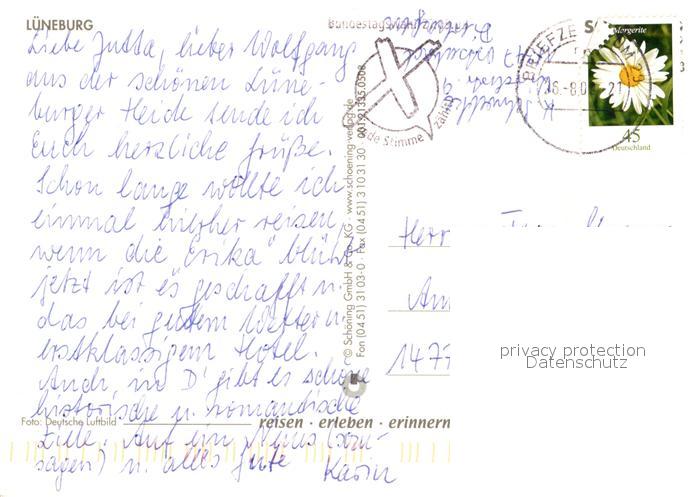 LÜNEBURG
Liebe Jutta, lieber Wolfgang
aus der schönen Lüne-
burger Heide sende ich
Euch herzliche Grüße.
Schon lange wollte ich
einmal hierher reisen,
wenn die "Erika" blüht
jetzt ist es geschafft u.
das bei gutem Wetter u.
erstklassigem Hotel.
Auch in D' gibt es schöne
historische u. romantische
Ziele. Auf ein Neues (sozu-
sagen) u. alles Gute Karin
Foto: Deutsche Luftbild
reisen · erleben · erinnern
© Schöning GmbH & Co. KG · www.schoening-verlag.de
Fon (04 51) 31 03-0 · Fax (04 51) 3 10 31 30
Bundestagswahl
Stimme zählt
BRIEFZE
Margerite
45
Deutschland
Herr
Am
1477
privacy protection
Datenschutz